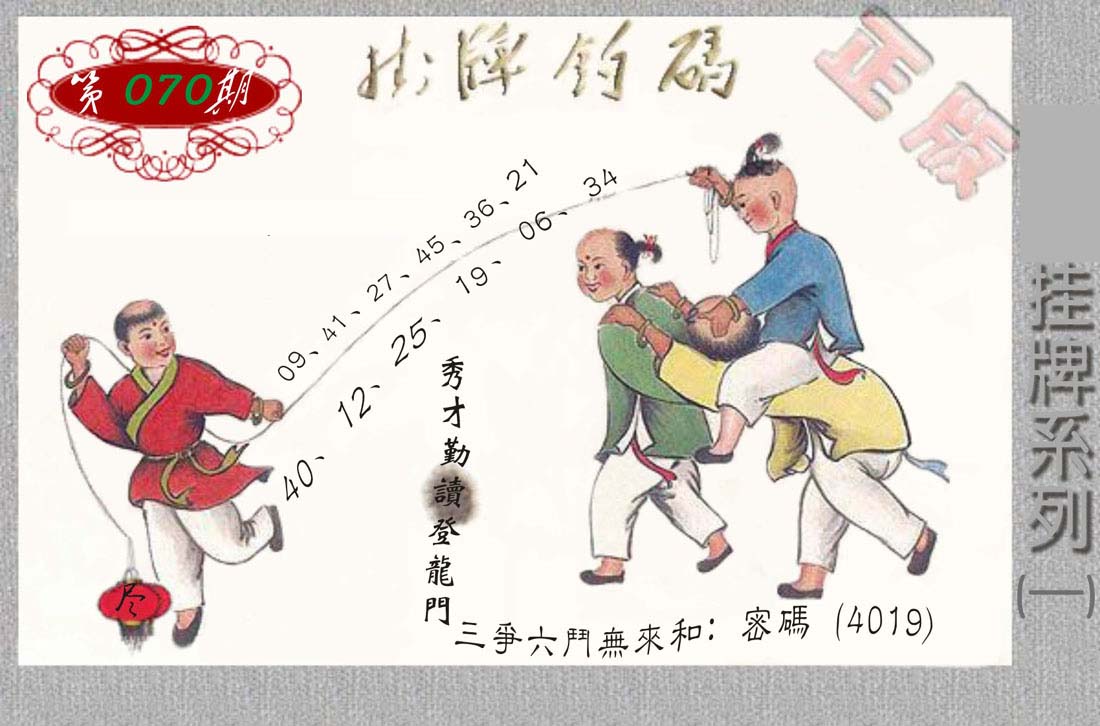 第 070 期
挂牌钓码
正版
09、41、27、45、36、21
40、12、25、19、06、34
秀才勤讀登龍門
三爭六鬥無來和：密碼 (4019)
尽
挂牌系列(一)